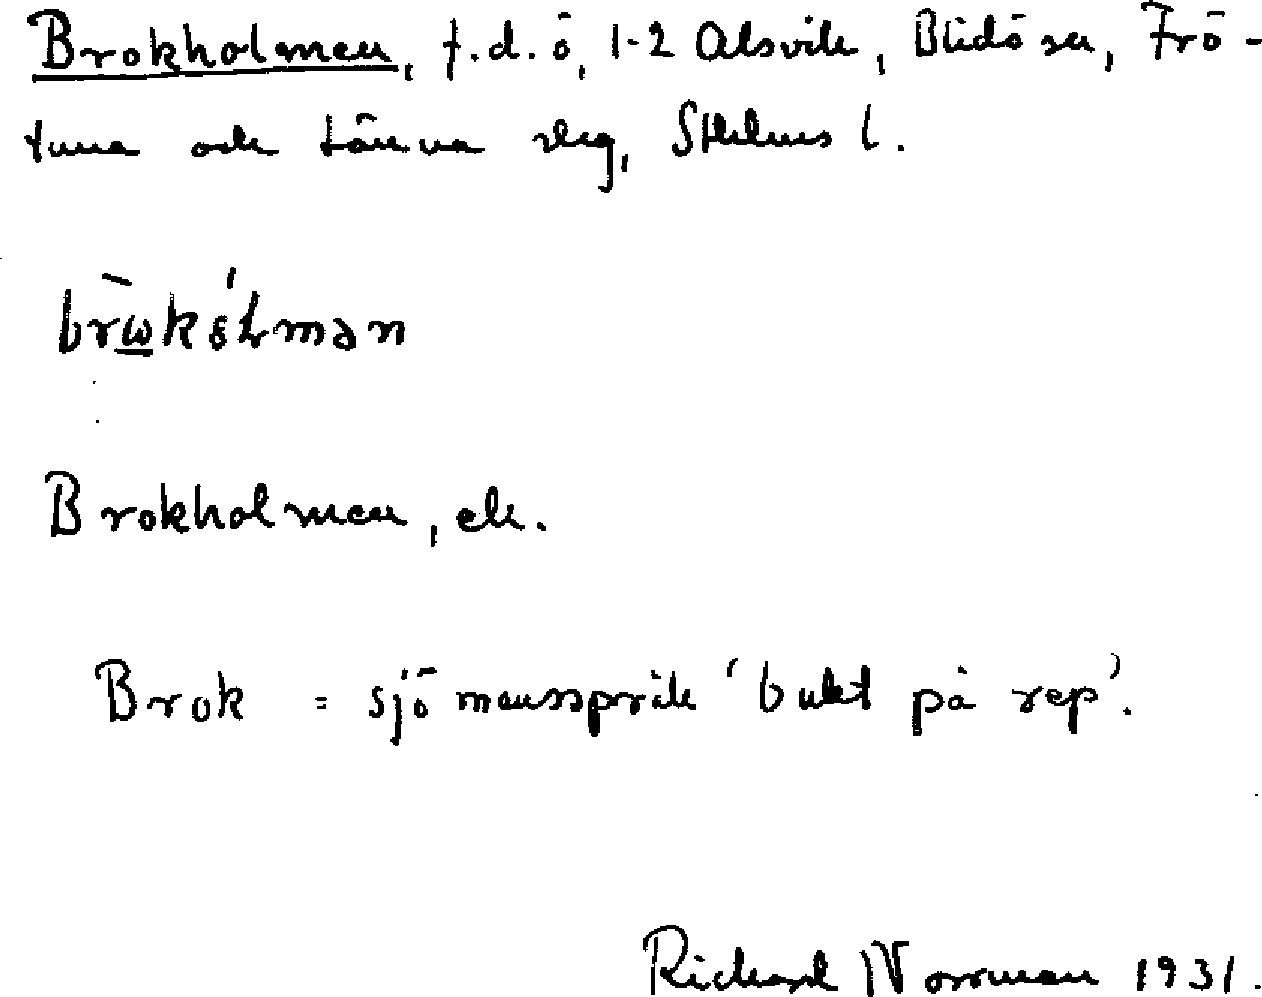 Brokholmen, f.d. ö, 1-2 Alsvik, Blidö sn, Frö-
tuna och Länna slg, Sthlms l.
brὼ̲kɞ́lmən
Brokholmen, ek.
Brok = sjömansspråk 'bukt på rep'.
Richard Norrman 1931.